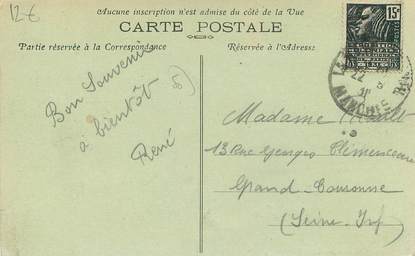 12€
Aucune inscription n'est admise du côté de la Vue
CARTE POSTALE
Partie réservée à la Correspondance
Réservée à l'Adresse
15c
22
31
MANCHE
Bon Souvenir
à bientôt
René
Madame
13 Rue Georges Clémenceau
Grand-Couronne
(Seine-Inf)